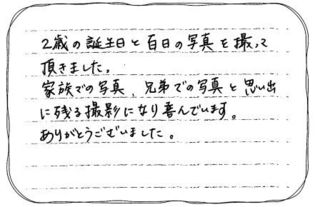 2歳の誕生日と百日の写真を撮って
頂きました。
家族での写真、兄弟での写真と思い出
に残る撮影になり喜んでいます。
ありがとうございました。